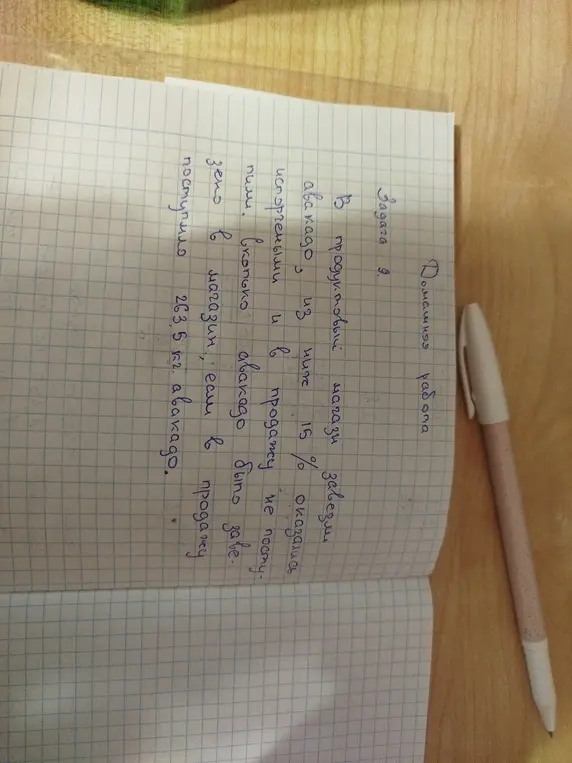 Домашняя работа
Задача 9.
В продуктовый магази завезли
авакадо, из них 15 % оказались
испорчеными и в продажу не посту-
пили. Сколько авакадо было заве-
зено в магазин, если в продажу
поступило 263,5 кг авакадо.